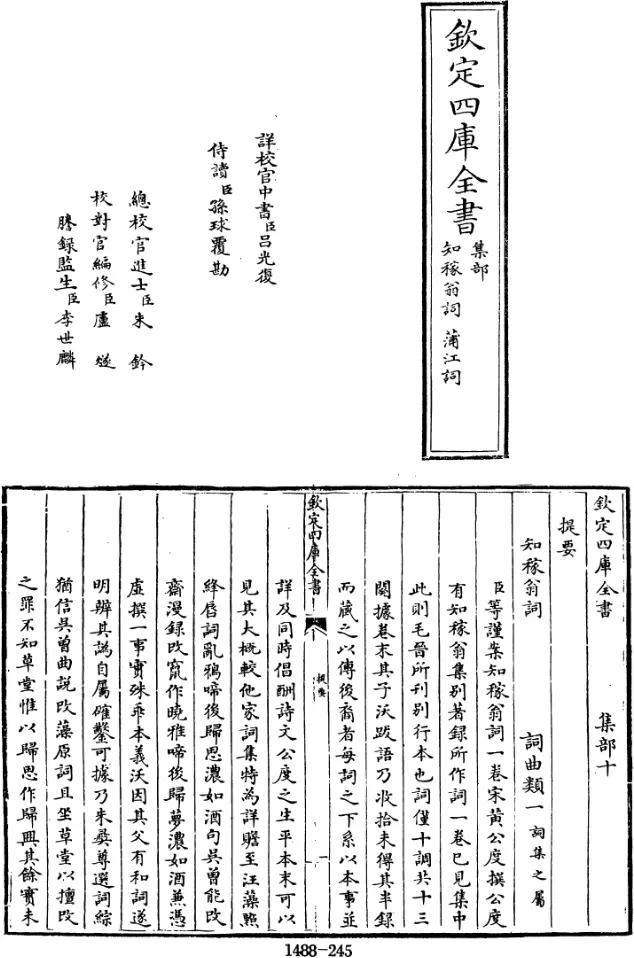 欽定四庫全書
集部
知稼翁詞 蒲江詞
詳校官中書臣呂光復
侍讀臣孫球覆勘
總校官進士臣朱鈐
校對官編修臣盧遂
謄錄監生臣李世麟
欽定四庫全書 集部十
提要
知稼翁詞 詞曲類一 詞集之屬
臣等謹案知稼翁詞一卷宋黃公度撰公度
有知稼翁集别著録所作詞一卷已見集中
此則毛晉所刊别行本也詞僅十調共十三
闋據卷末其子沃跋語乃收拾未得其半録
而藏之以傳後裔者每詞之下系以本事並
欽定四庫全書
提要
一
詳及同時倡酬詩文公度之生平本末可以
見其大概較他家詞集特為詳贍至汪藻點
絳唇詞亂鴉啼後歸思濃如酒句吳曾能改
齋漫録改竄作曉雅啼後歸夢濃如酒兼憑
虛撰一事實殊乖本義沃因其父有和詞遂
明辨其譌自屬確鑿可據乃朱彝尊選詞綜
猶信吳曾曲說改藻原詞且坐草堂以擅改
之罪不知草堂惟以歸思作歸興其餘實未
1488—245